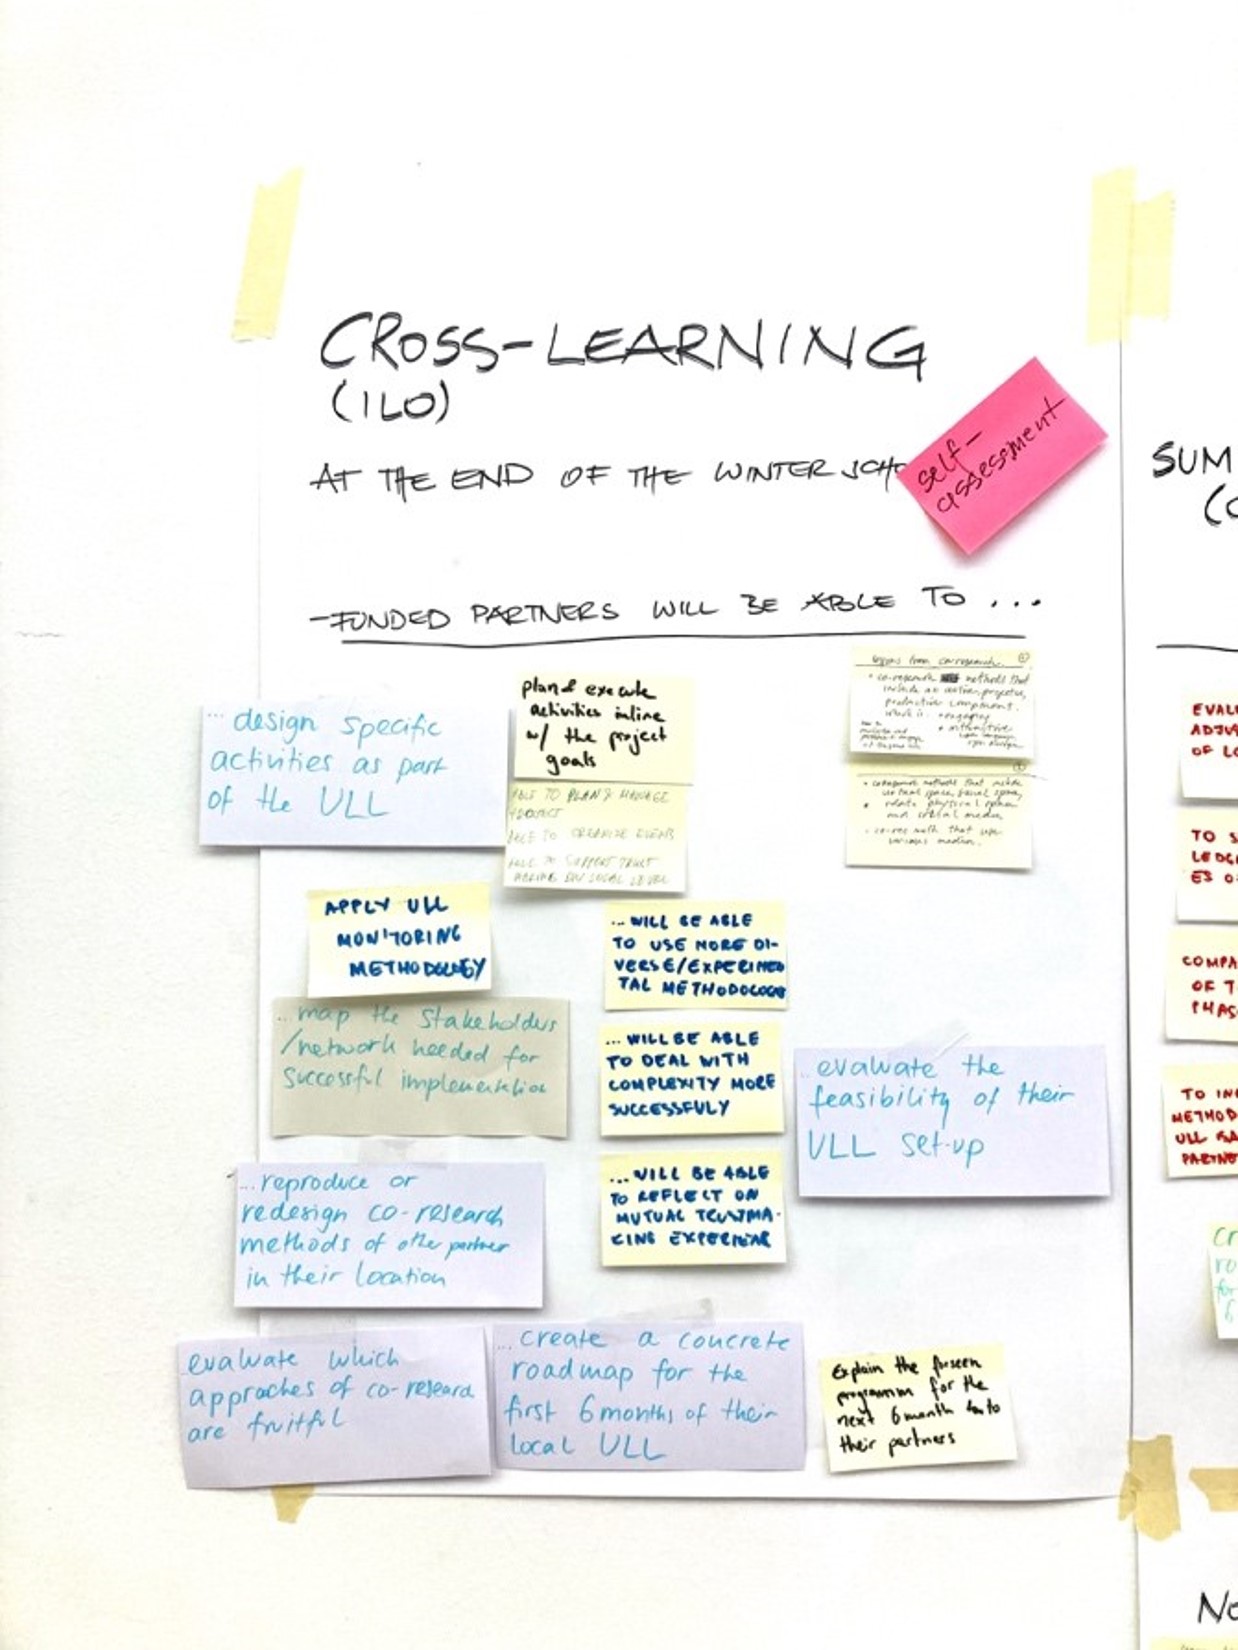 CROSS-LEARNING
(ILO)
AT THE END OF THE WINTER SCHO
self-
assessment
-FUNDED PARTNERS WILL BE ABLE TO ...
... design specific
activities as part
of the ULL
plan & execute
activities inline
w/ the project
goals
ABLE TO PLAN & MANAGE
PROJECT
ABLE TO ORGANIZE EVENTS
ABLE TO SUPPORT TRUST
MAKING ON LOCAL LEVEL
from co-research
• co-research methods that
include an active, projective,
productive component.
which is: • engaging
• co-research methods that include
virtual space, social space,
• relate physical space
and social media,
various medium.
APPLY ULL
MONITORING
METHODOLOGY
... WILL BE ABLE
TO USE MORE DI-
VERSE/EXPERIMEN
TAL METHODOLOGY
...map the stakeholders
/network needed for
successful implementation
... WILL BE ABLE
TO DEAL WITH
COMPLEXITY MORE
SUCCESSFULY
evaluate the
feasibility of their
ULL set-up
...reproduce or
redesign co-research
methods of other partner
in their location
... WILL BE ABLE
TO REFLECT ON
MUTUAL TRUSTMA-
KING EXPERIENC
evaluate which
approaches of co-research
are fruitful
...create a concrete
roadmap for the
first 6 months of their
local ULL
Explain the forseen
programm for the
next 6 month to
their partners
SUM
(C
EVALU
ADJU
OF LO
TO S
LEDG
ES O
COMPA
OF T
PHAS
TO IN
METHOD
ULL
PARTNE
Cr
ro
for
6
No